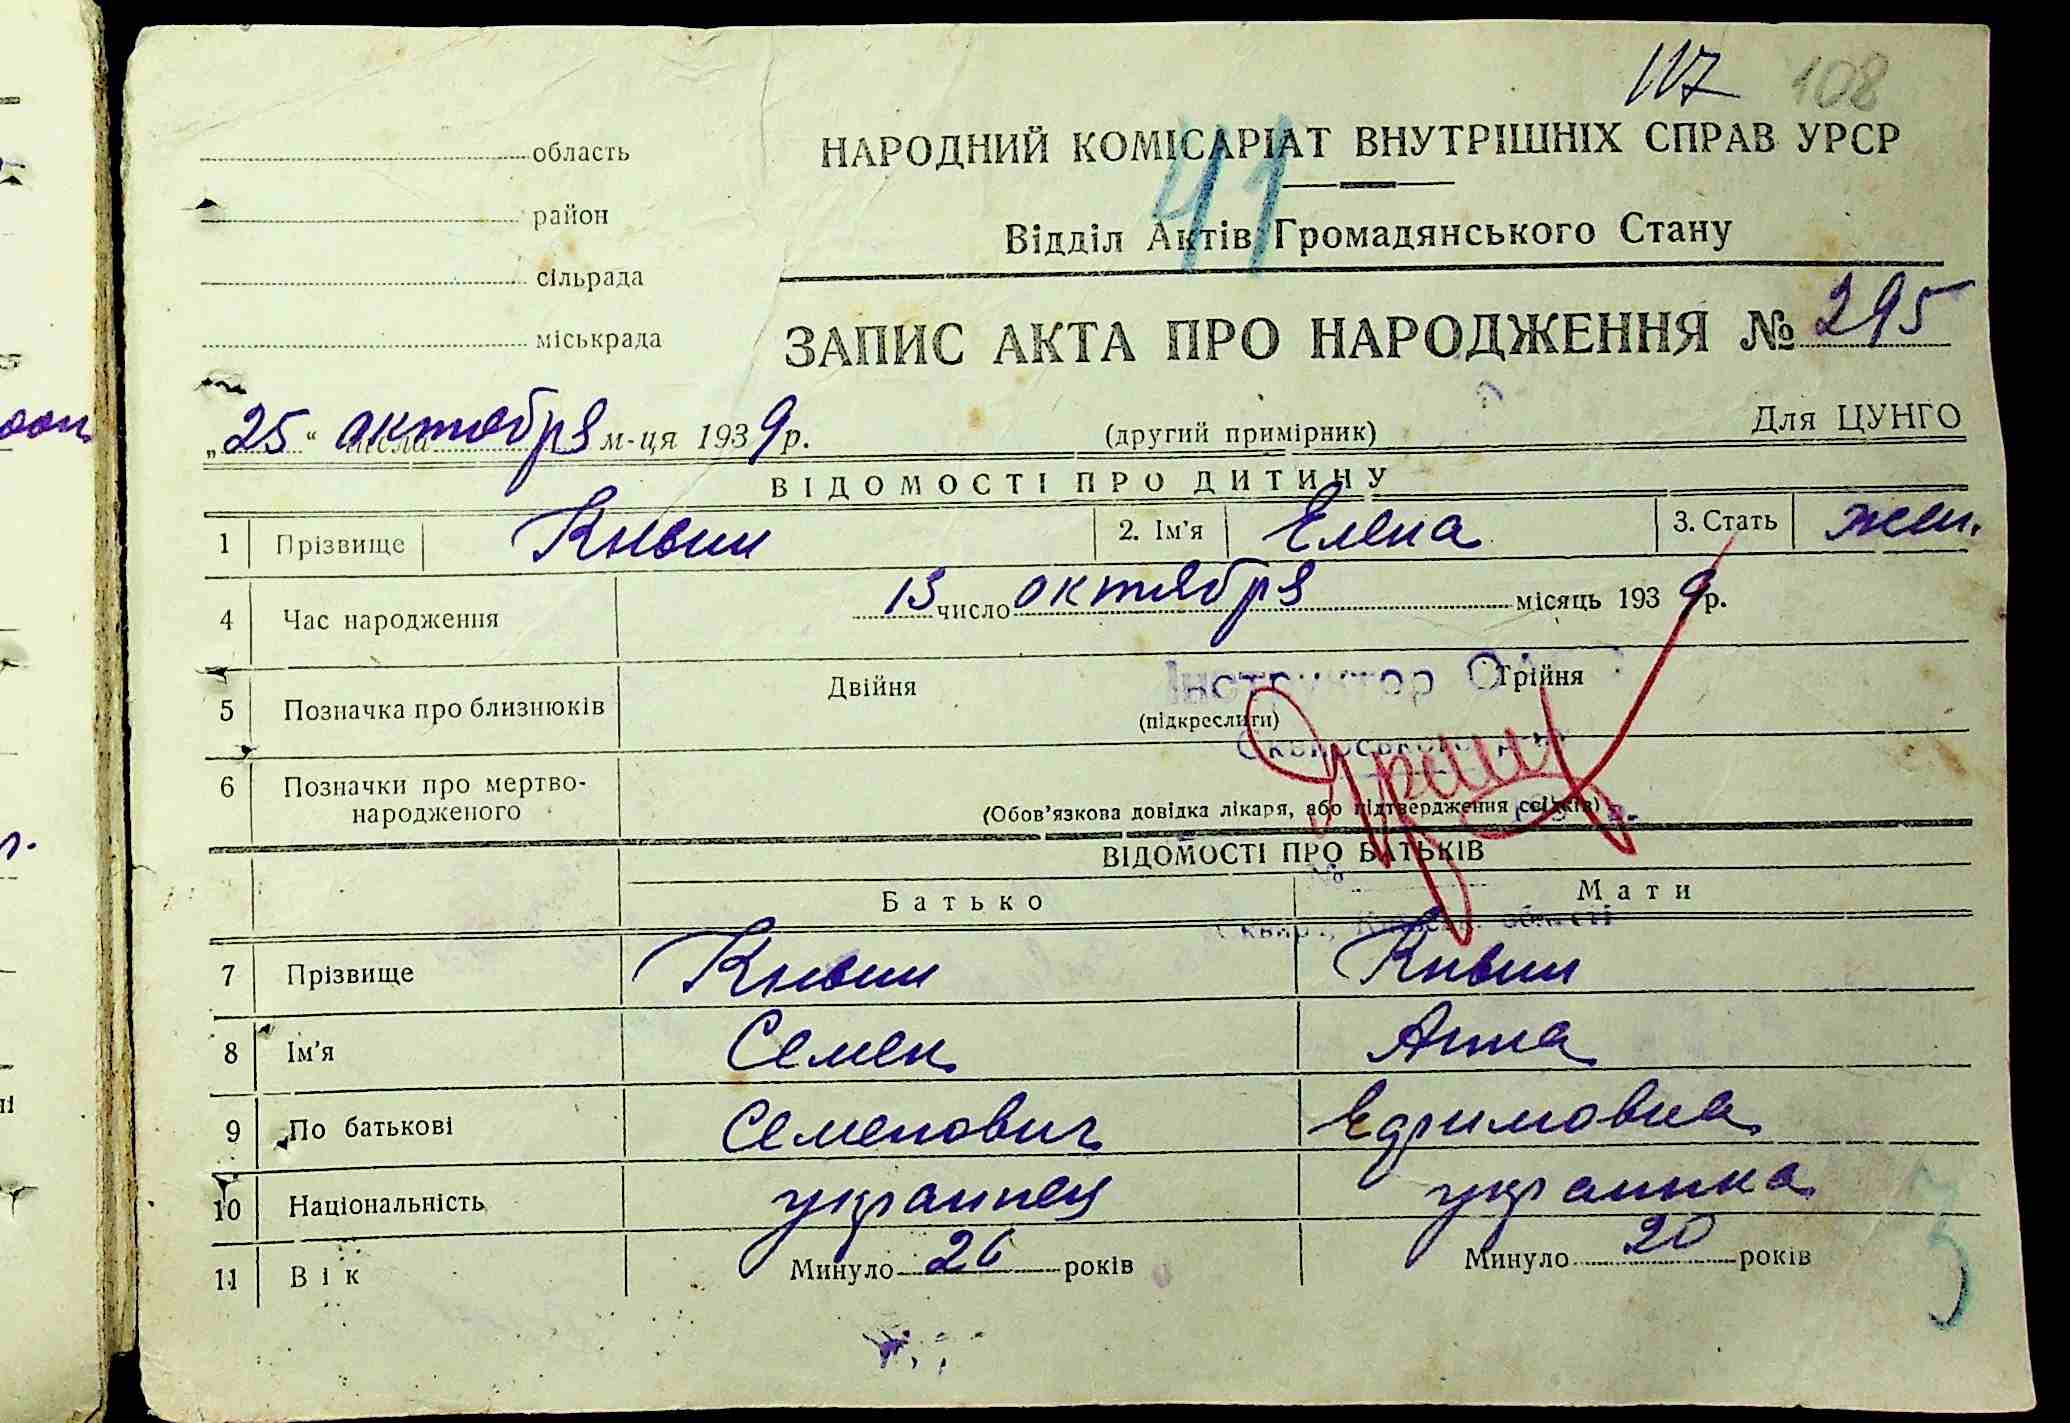 117 108
область
район
сільрада
міськрада
НАРОДНИЙ КОМІСАРІАТ ВНУТРІШНІХ СПРАВ УРСР
41
Відділ Актів Громадянського Стану
ЗАПИС АКТА ПРО НАРОДЖЕННЯ № 295
„25“ числа октября м-ця 1939 р.
(другий примірник)
Для ЦУНГО
ВІДОМОСТІ ПРО ДИТИНУ
1 Прізвище 2. Ім'я Елена 3. Стать жен.
4 Час народження 13 число октября місяць 1939 р.
5 Позначка про близнюків Двійня Трійня
(підкреслити)
Інструктор
6 Позначки про мертво-
народженого
(Обов'язкова довідка лікаря, або підтвердження свідків)
ВІДОМОСТІ ПРО БАТЬКІВ
Батько Мати
області
7 Прізвище
8 Ім'я Семен Анна
9 По батькові Семенович Ефримовна
10 Національність украинец украинка
11 Вік Минуло 26 років Минуло 20 років